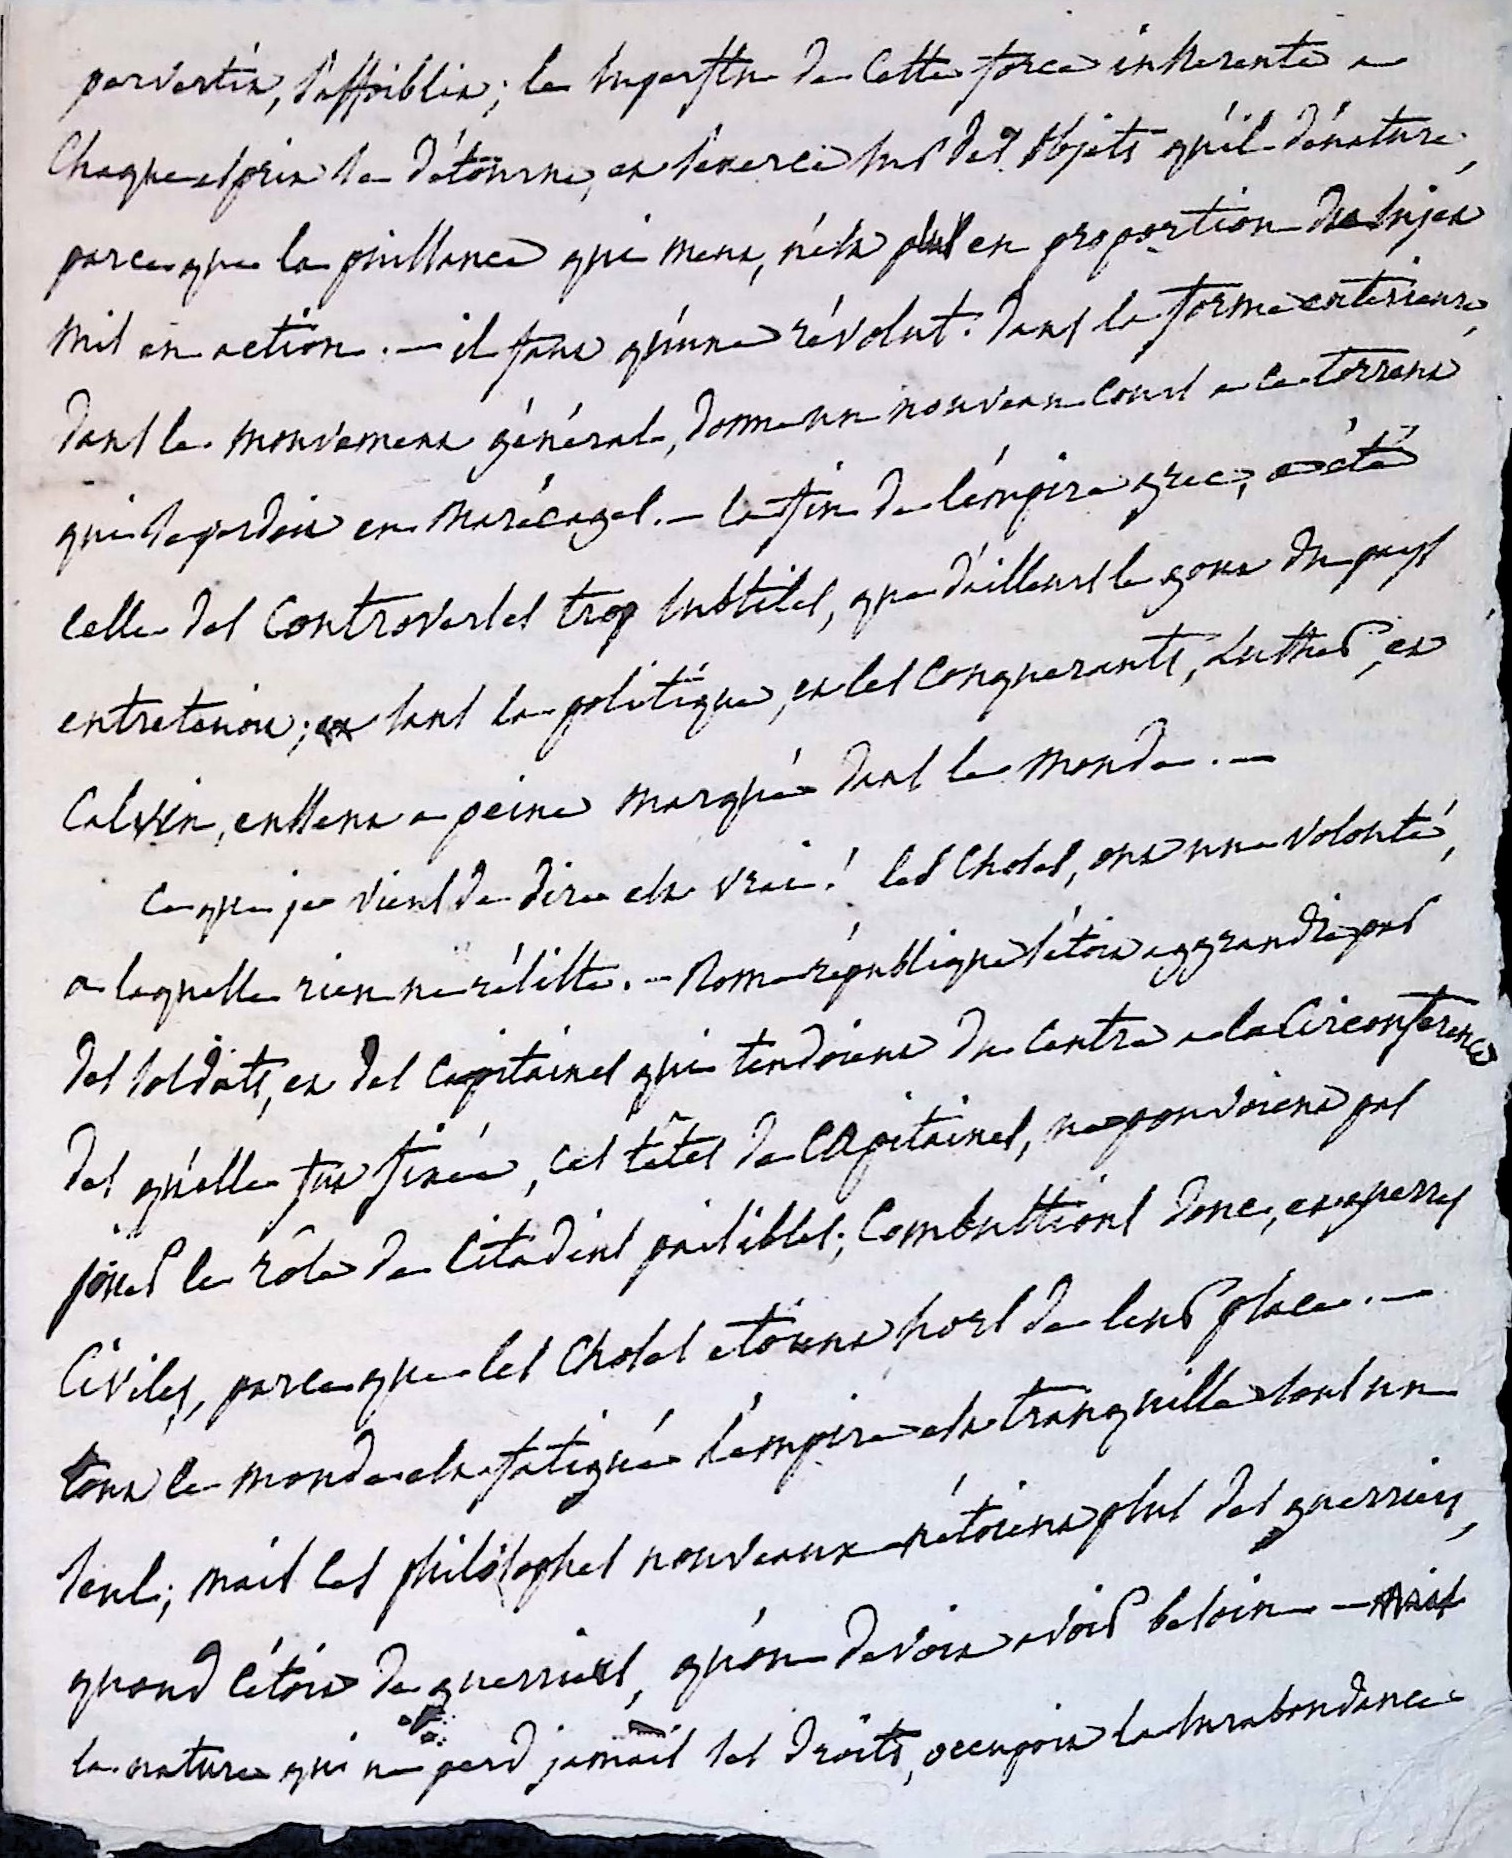 pervertir, s'affoiblir ; le superflu de cette force inherente a
chaque esprit se détourne, et s'exerce sur des objets qu'il dénature,
parce que la puissance qui meut, n'est plus en proportion du sujet
mis en action. — il faut qu'une révolut: dans la forme exterieure,
dans le mouvement général, donne un nouveau cours a ce torrent
qui se perdoit en marécages. — la fin de l'émpire grec, a été
celle des controverses trop subtiles, que d'ailleurs le gout du pays
entretenoit ; et sans la politique, et les conquerants, Luther, et
Calvin, eussent a peine marqué dans le monde. —
ce que je viens de dire est vrai ! les choses, ont une volonté,
a laquelle rien ne résiste. — Rome république s'étoit aggrandie par
des soldats, et des capitaines qui tendoient du centre a la circonference
des qu'elle fut fixée, ces têtes de capitaines, ne pouvoient pas
jouer le rôle de citadins paisibles ; combustions donc, et guerres
civiles, parce que les choses etoient hors de leur place. —
tout le monde est fatigué l'émpire est tranquille sous un
seul ; mais les philosophes nouveaux n'étoient plus des guerriers,
quand c'étoit de guerriers, qu'on devoit avoir besoin —
la nature qui ne perd jamais ses droits, occupoit la surabondance